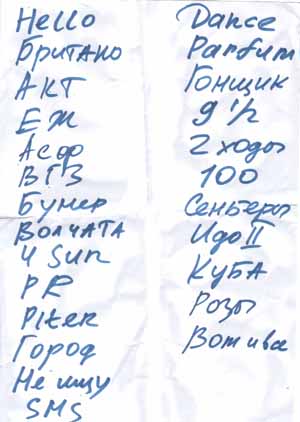 Hello
Британо
АКТ
ЕЖ
Асфо
ВГЗ
Бумер
ВОЛЧАТА
4 Sun
PR
Piter
Город
Не ищу
SMS
Dance
Parfum
Гонщик
9 1/2
2 ходы
100
Сеньоры
Идо II
КУБА
Розы
Вотивсе